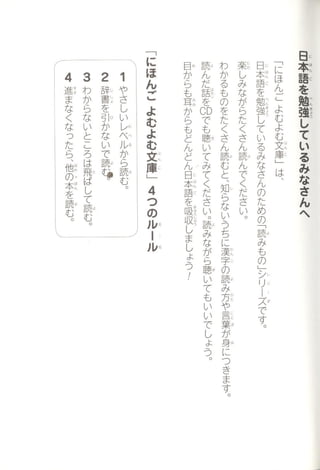 日本語を勉強しているみなさんへ
「にほんご よむよむ文庫」は、
日本語を勉強しているみなさんのための「読みもの」シリーズです。
楽しみながらたくさん読んでください。
わかるものをたくさん読むと、知らないうちに漢字の読み方や言葉が身につきます。
読んだ話をCDでも聴いてみてください。読みながら聴いてもいいでしょう。
目からも耳からもどんどん日本語を吸収しましょう！
「にほんご よむよむ文庫」 4つのルール
1 やさしいレベルから読む。
2 辞書を引かないで読む。
3 わからないところは飛ばして読む。
4 進まなくなったら、他の本を読む。